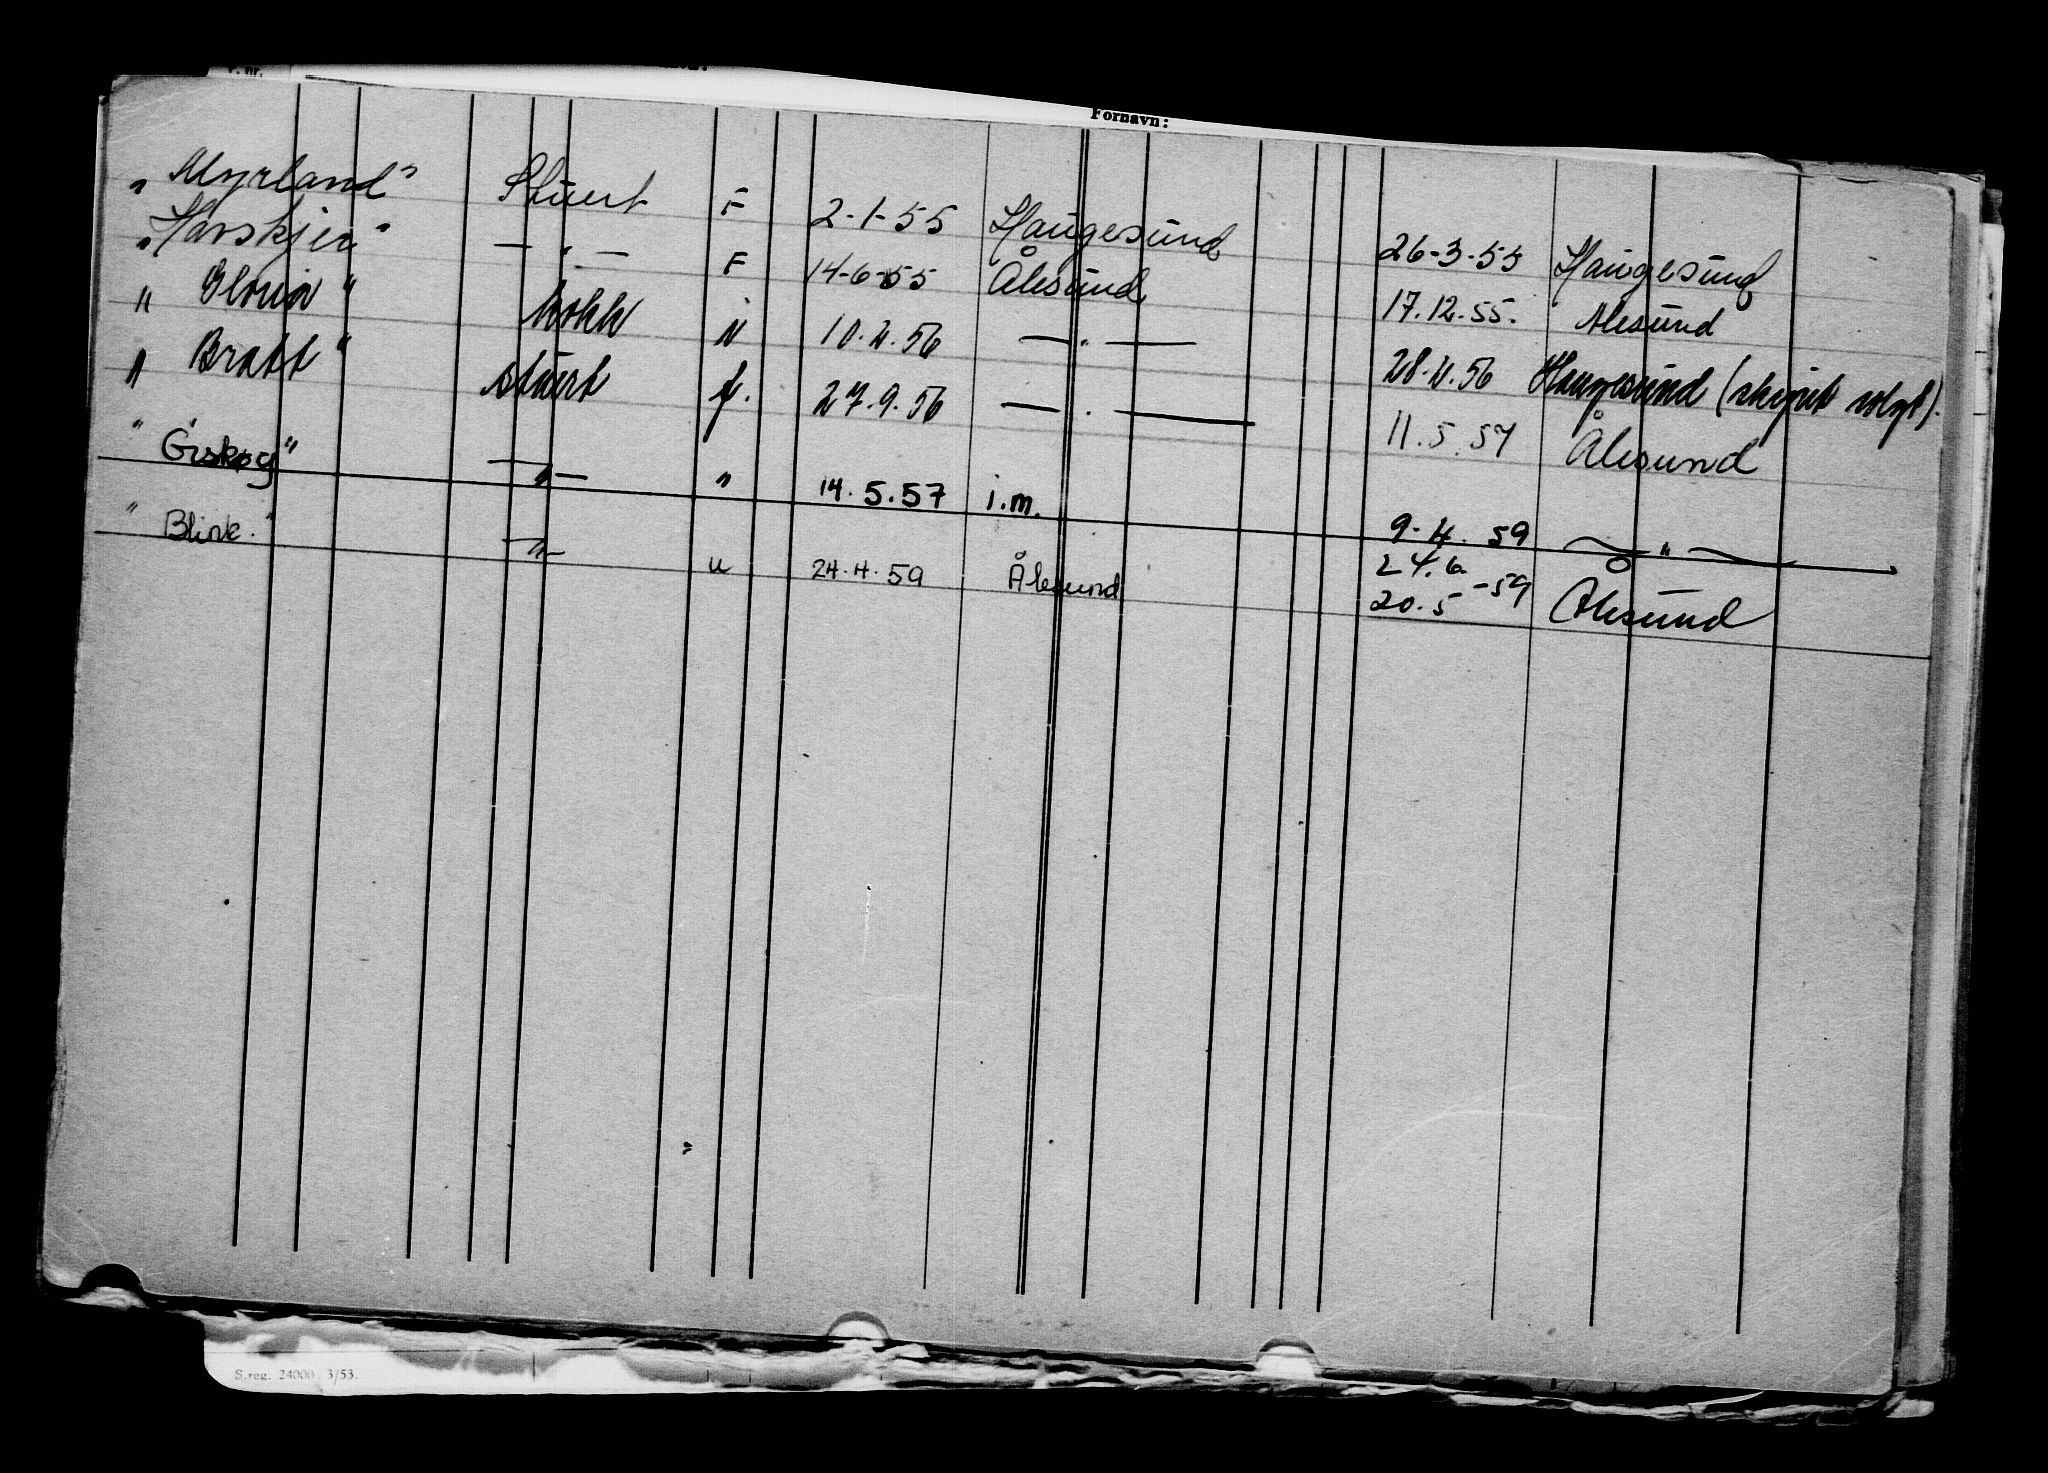 Fornavn:
"Myrland" Stuert F 2-1-55 Haugesund 26-3-55 Haugesund
"Havskjer" — " — F 14-6-55 Ålesund 17.12.55. Ålesund
" Gloria " kokk N 10.4.56 — " — 28.4.56 Haugesund (skipet solgt).
" Bratt " stuert f. 27.9.56 — " — 11.5.57 Ålesund
" Giskøy" — " — " 14.5.57 i.m. 9-4.59 — " —
" Blink." — " — u 24.4.59 Ålesund 24.6.
20.5 -59 Ålesund
S.reg. 24000. 3/53.